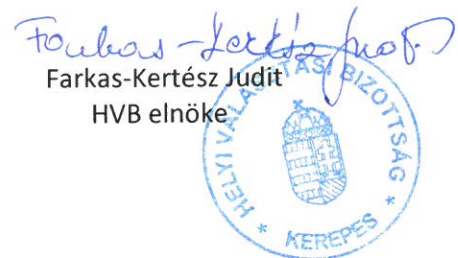 Farkas-Kertész Judit
Farkas-Kertész Judit
HVB elnöke
HELYI VÁLASZTÁSI BIZOTTSÁG
* KEREPES *